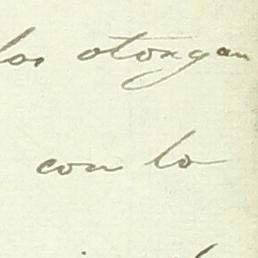 los otorgan
con lo